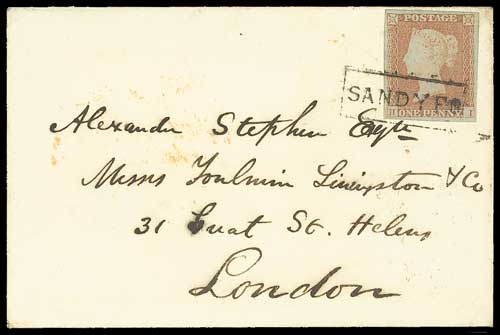 POSTAGE
SANDYFD
H ONE PENNY I
Alexander Stephen Esqre
Messrs Toulmin Livingston & Co
31 Great St. Helens
London